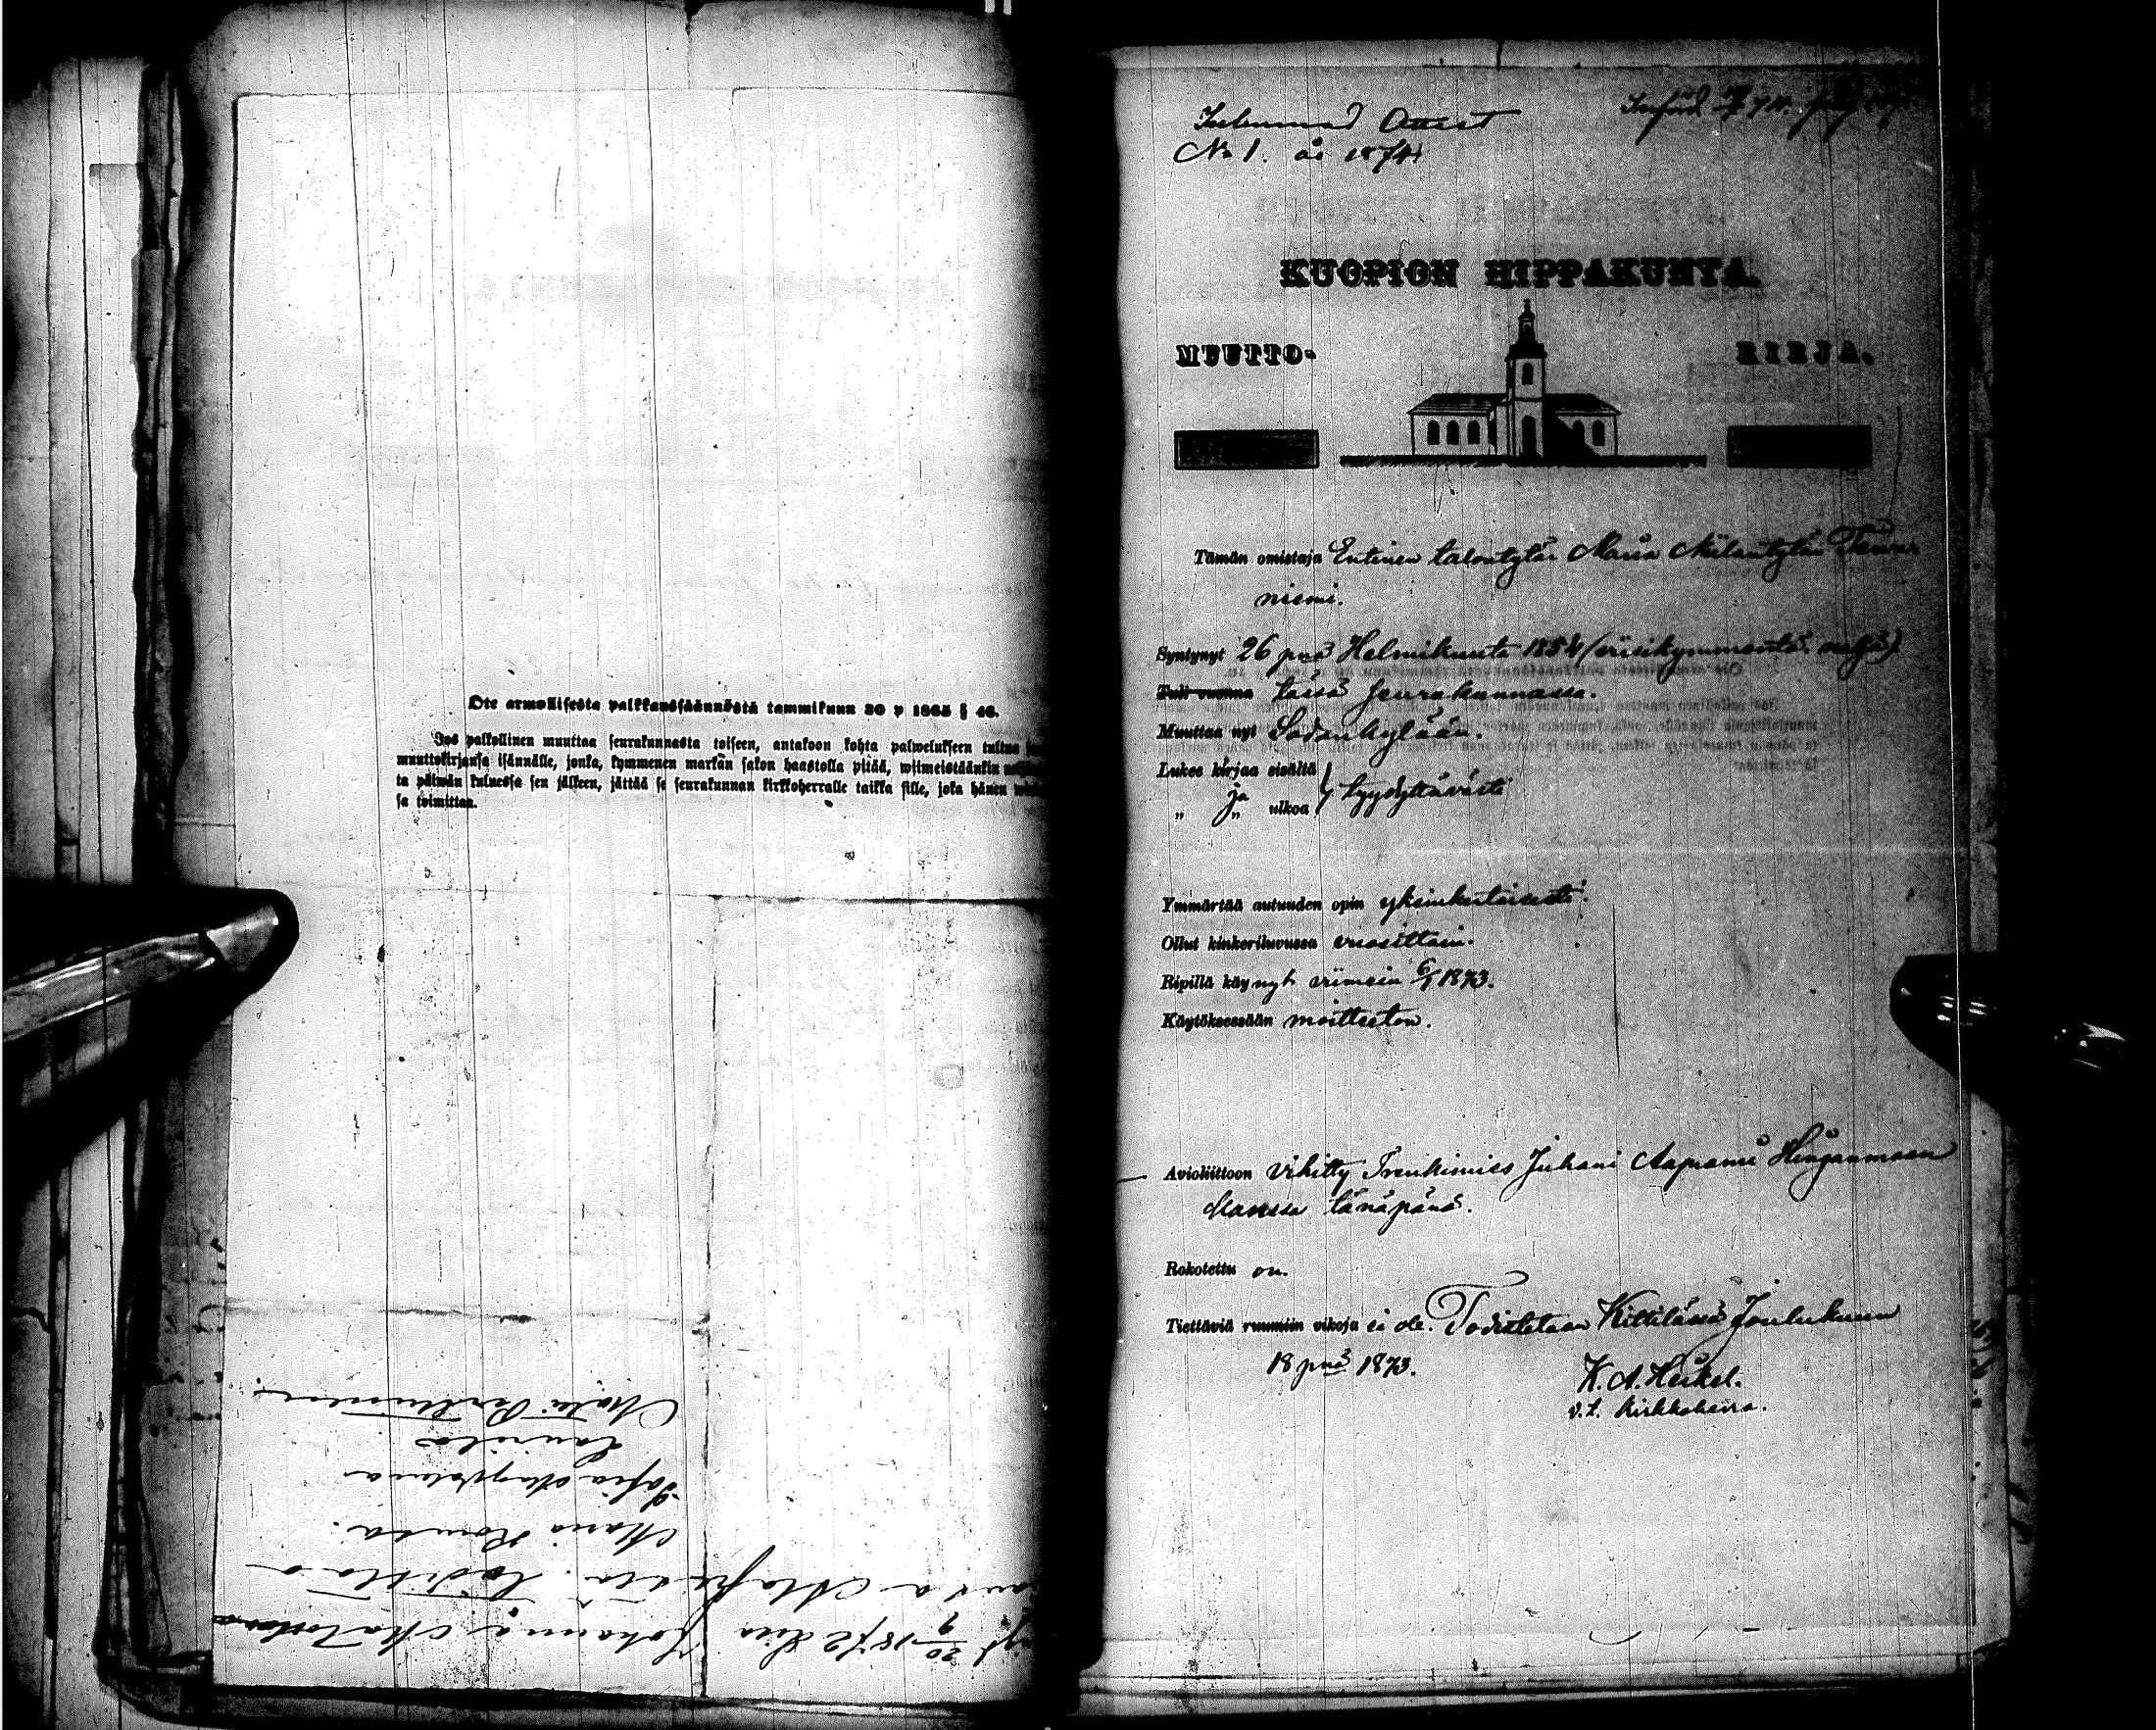 Ote armollisesta palkkaussäännöstä tammikuun 30 p 1865 § 46.
Jos palkollinen muuttaa seurakunnasta toiseen, antakoon kohta palwelukseen tultua
muuttokirjansa isännälle, jonka, kymmenen markan sakon haastolla pitää, wiimeistäänkin
ta päiwän kuluessa sen jälkeen, jättää se seurakunnan kirkkoherralle taikka sille, joka hänen
sa toimittaa.
20/9 1872 Johanna
Maria
Sofia Magdalena
Laurila
Inkommed Attest
No 1. år 1874
Införd
KUOPION HIPPAKUNTA.
MUUTTO- KIRJA.
Tämän omistaja Entinen talontytär Maria Niilantytär
niemi.
Syntynyt 26 pnä Helmikuuta 1854 (viisikymmentä neljä)
Tuli vuonna tässä seurakunnassa.
Muuttaa nyt Sodankylään.
Lukee kirjaa sisältä
„ ja „ ulkoa } tyydyttävästi
Ymmärtää autuuden opin yksinkertaisesti.
Ollut kinkeriluvussa vuosittain.
Ripillä käynyt viimein 6/1 1873.
Käytöksessään moitteeton.
Avioliittoon vihitty Trenkimies Juhani Aapranti Hinganmaan
kanssa tänäpänä.
Rokotettu on.
Tiettäviä ruumiin vikoja ei ole. Todistetaan Kittilässä Joulukuun
18 pnä 1873.
K. A. Heikel.
v.t. kirkkoherra.